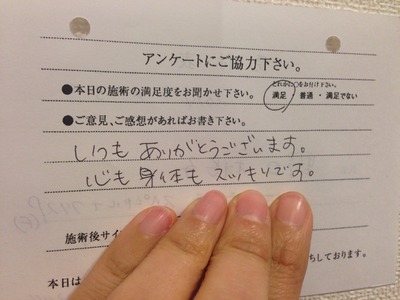 アンケートにご協力下さい。
どれかに○をお付け下さい。
●本日の施術の満足度をお聞かせ下さい。 満足 ・ 普通 ・ 満足でない
●ご意見、ご感想があればお書き下さい。
いつも ありがとうございます。
心も 身体も スッキリです。
施術後サイ
ちしております。
本日は